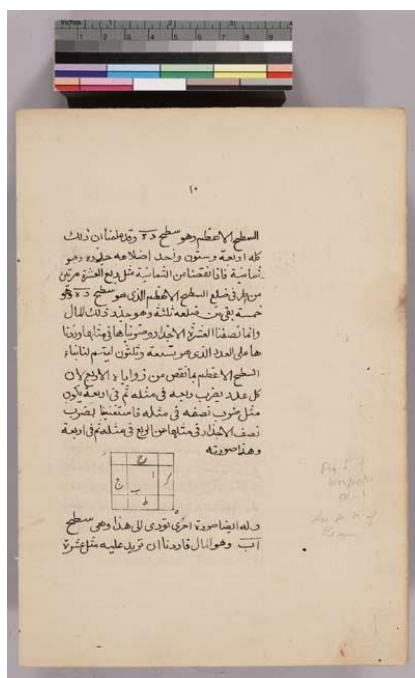 inches 1 2 3
1 2 3 4 5 6 7 8 9
١٠
السطح الاعظم وهو سطح ده وقد علمنا ان ذلك
كله اربعة وستون واحد اضلاعه جذره وهو
ثمانية فاذا نقصنا من الثمانية مثل ربع العشرة مرتين
من ضلع السطح الاعظم الذى هو سطح ده وهو
خمسة بقى من ضلعه ثلثة وهو جذر ذلك المال
وانما نصفنا العشرة الاجذار وضربناها فى مثلها وزدنا
ها على العدد الذى هو تسعة وثلثون ليتم لنا بناء
السطح الاعظم بما نقص من زواياه الاربع لان
كل عدد يضرب ربعه فى مثله ثم فى اربعة يكون
مثل ضرب نصفه فى مثله فاستغنينا بضرب
نصف الاجذار فى مثلها عن الربع فى مثله ثم فى اربعة
وهذا صورته
ح
ج
ب
ا
ط
ه
وله ايضا صورة اخرى تؤدى الى هذا وهى سطح
اب وهو المال فاردنا ان نزيد عليه مثل عشرة